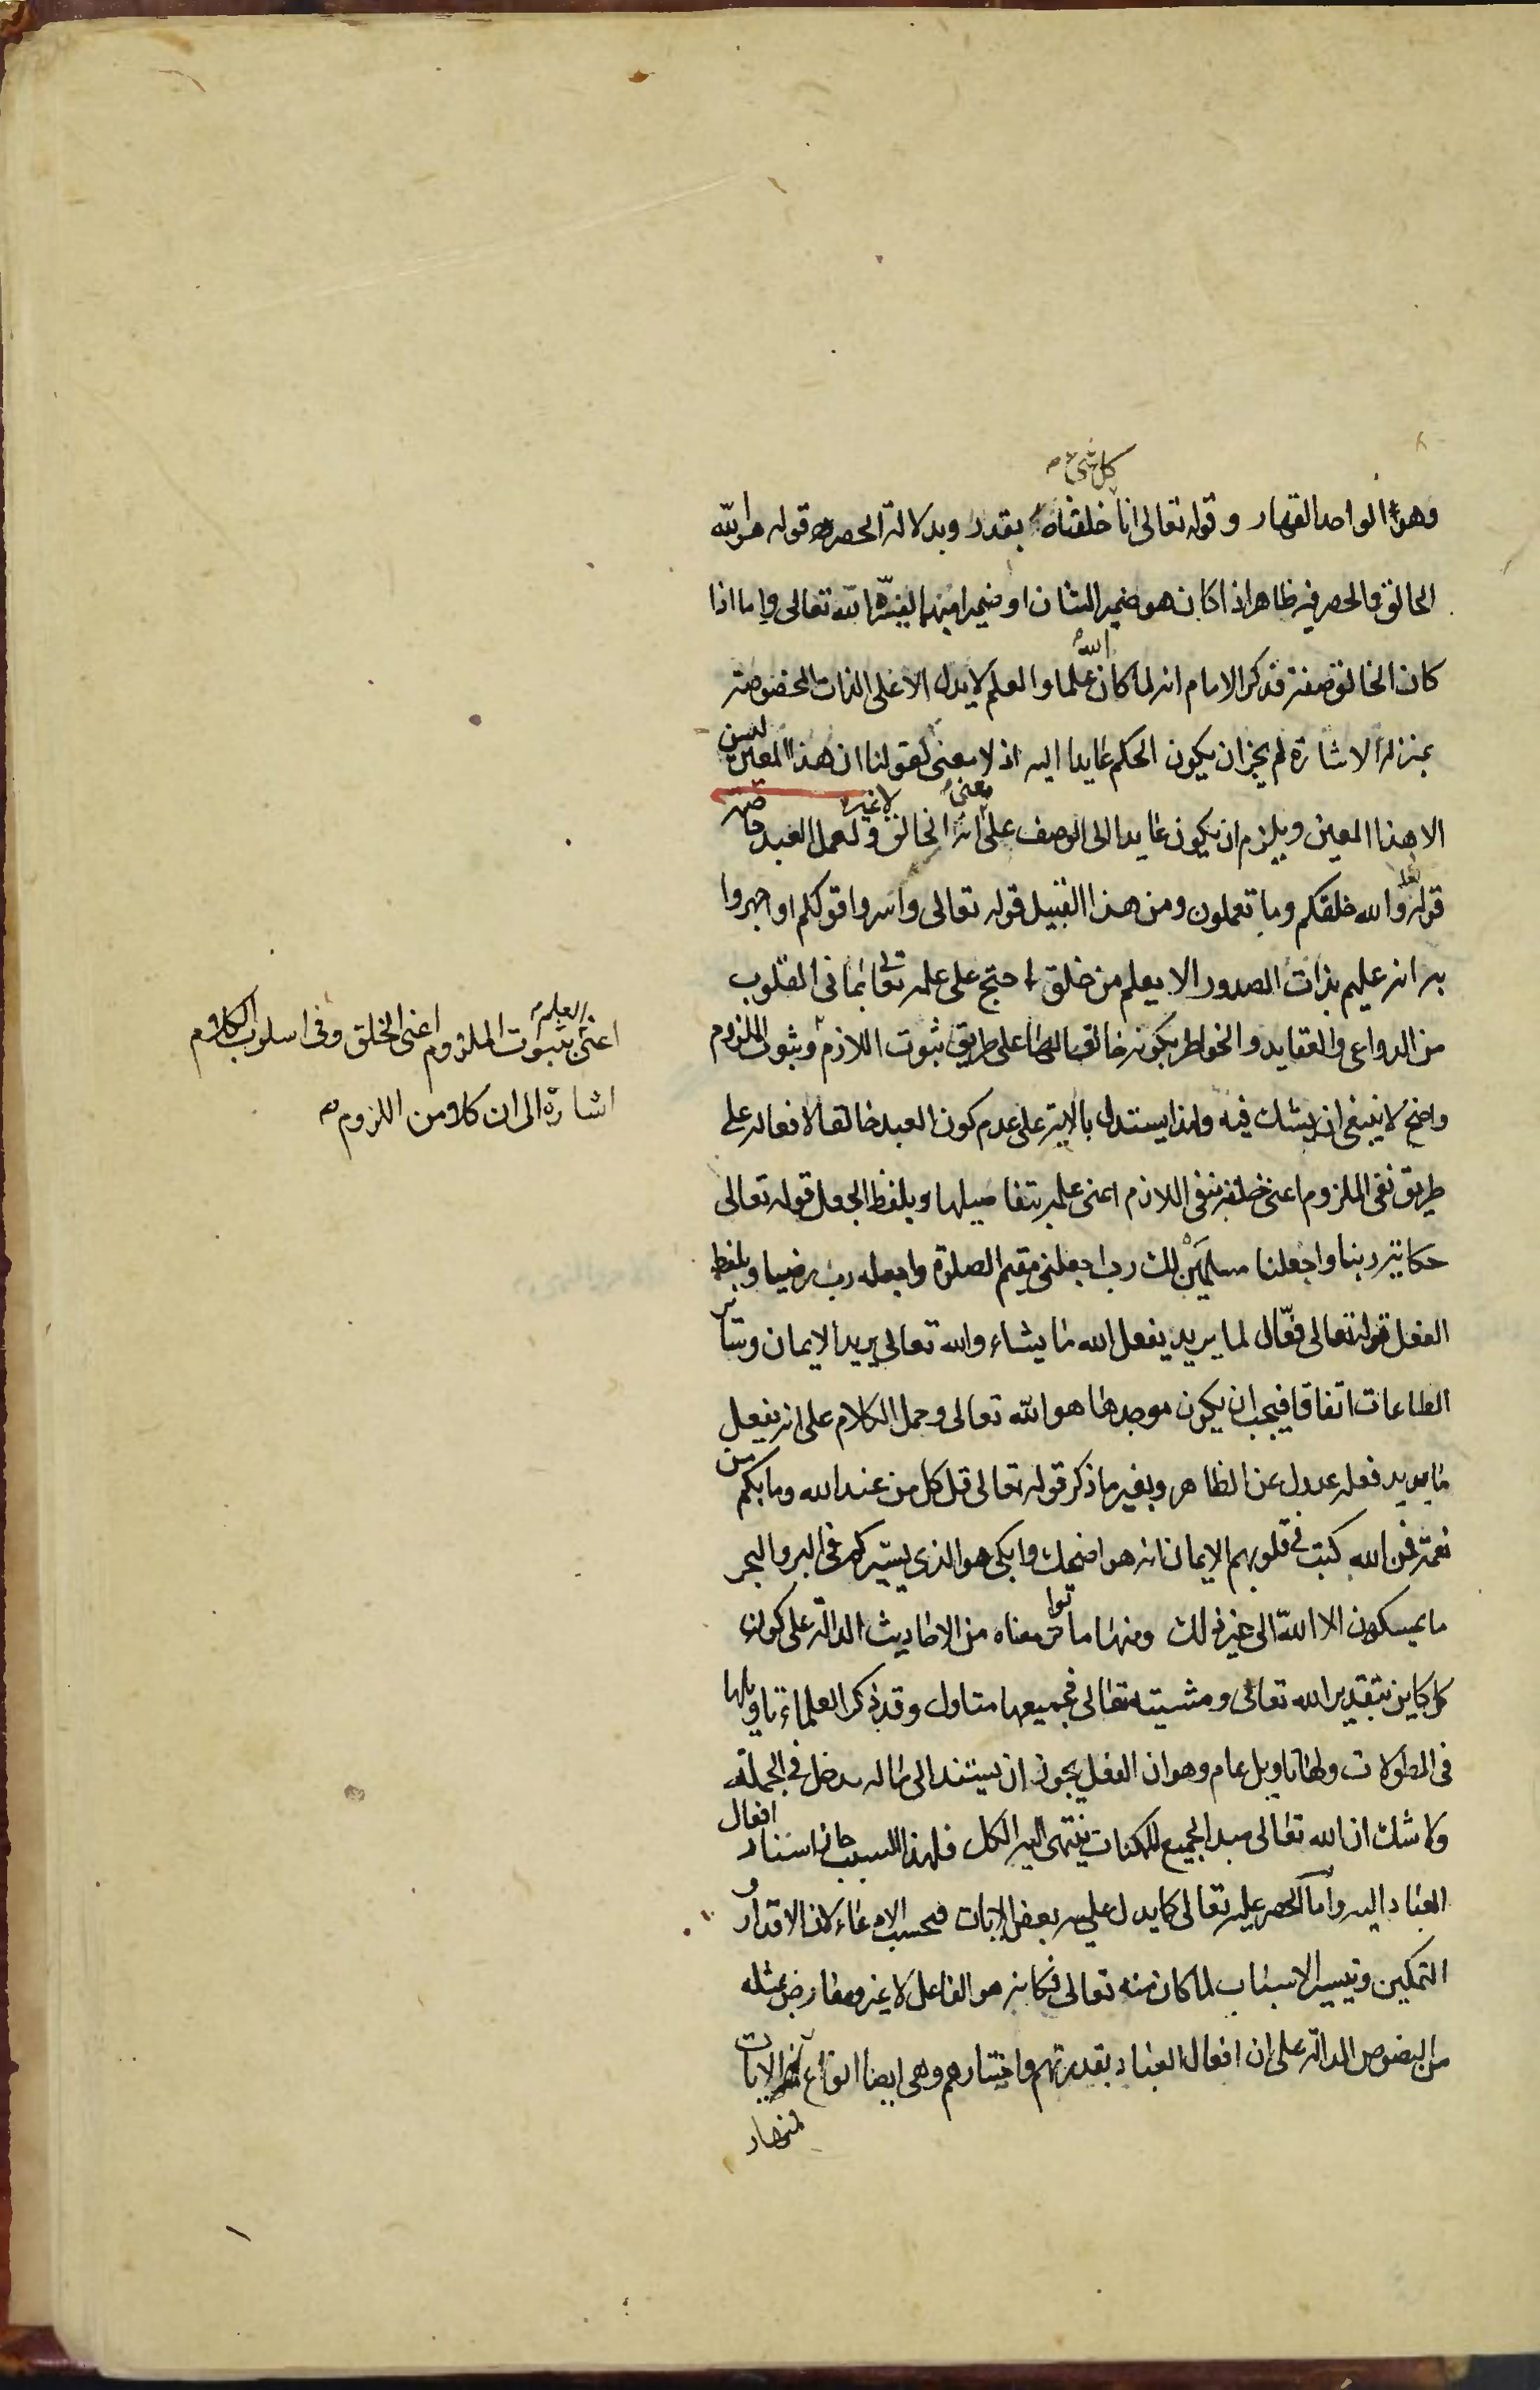 كل شئ
وهو الواحد القهار وقوله تعالى انا خلقناه بقدر وبدلالة الحصر قوله هو الله
الخالق فالحصر فيه ظاهر اذا كان هو ضمير الشان او ضميرا مبهما يفسره الله تعالى واما اذا
كان الخالق صفة فذكر الامام انه لما كان الله علما والعلم لا يدل الا على الذات المخصوصة
بمنزلة الاشارة لم يجز ان يكون الحكم عايدا اليه اذ لا معنى لقولنا ان هذا المعين ليس
الا هذا المعين ويلزم ان يكون عايدا الى الوصف على معنى انه الخالق لا غيره ولعمل العبد خاصة
قوله تعالى والله خلقكم وما تعملون ومن هذا القبيل قوله تعالى واسروا قولكم او اجهروا
به انه عليم بذات الصدور الا يعلم من خلق احتج على علمه تعالى بما فى القلوب
من الدواعى والعقايد والخواطر بكونه خالقا لها على طريق ثبوت اللازم وثبوت الملزوم
واضح لا ينبغى ان يشك فيه ولذا يستدل بالاية على عدم كون العبد خالقا لافعاله على
طريق نفى الملزوم اعنى خلقه بنفى اللازم اعنى علمه بتفاصيلها وبلفظ الجعل قوله تعالى
حكاية ربنا واجعلنا مسلمين لك رب اجعلنى مقيم الصلوة واجعله رب رضيا وبلفظ
الفعل قوله تعالى فعّال لما يريد يفعل الله ما يشاء والله تعالى يريد الايمان وساير
الطاعات اتفاقا فيجب ان يكون موجدها هو الله تعالى وحمل الكلام على انه يفعل
ما يريد فعله عدول عن الظاهر وبغير ما ذكر قوله تعالى قل كل من عند الله وما بكم من
نعمة فمن الله كتب فى قلوبهم الايمان انه هو اضحك وابكى هو الذى يسيركم فى البر والبحر
ما يمسكهن الا الله الى غير ذلك ومنها ما تواتر معناه من الاحاديث الدالة على كون
كل كاين بتقدير الله تعالى ومشيته تعالى فجميعها متاول وقد ذكر العلماء تاويلها
فى المطولات ولها تاويل عام وهو ان الفعل يجوز ان يستند الى ما له مدخل فى الجملة
ولا شك ان الله تعالى مبدا لجميع الممكنات ينتهى اليه الكل فلهذا السبب جاز اسناد افعال
العباد اليه واما الحصر عليه تعالى كما يدل عليه بعض الايات فبحسب الادعاء كان الاقدار و
التمكين وتيسير الاسباب لما كان منه تعالى فكانه هو الفاعل لا غير ومعارض بمثله
من النصوص الدالة على ان افعال العباد بقدرتهم واختيارهم وهى ايضا انواع الايات
العلم
اعنى بثبوت الملزوم اعنى الخلق وفى اسلوب الكلام
اشارة الى ان كلا من اللزوم